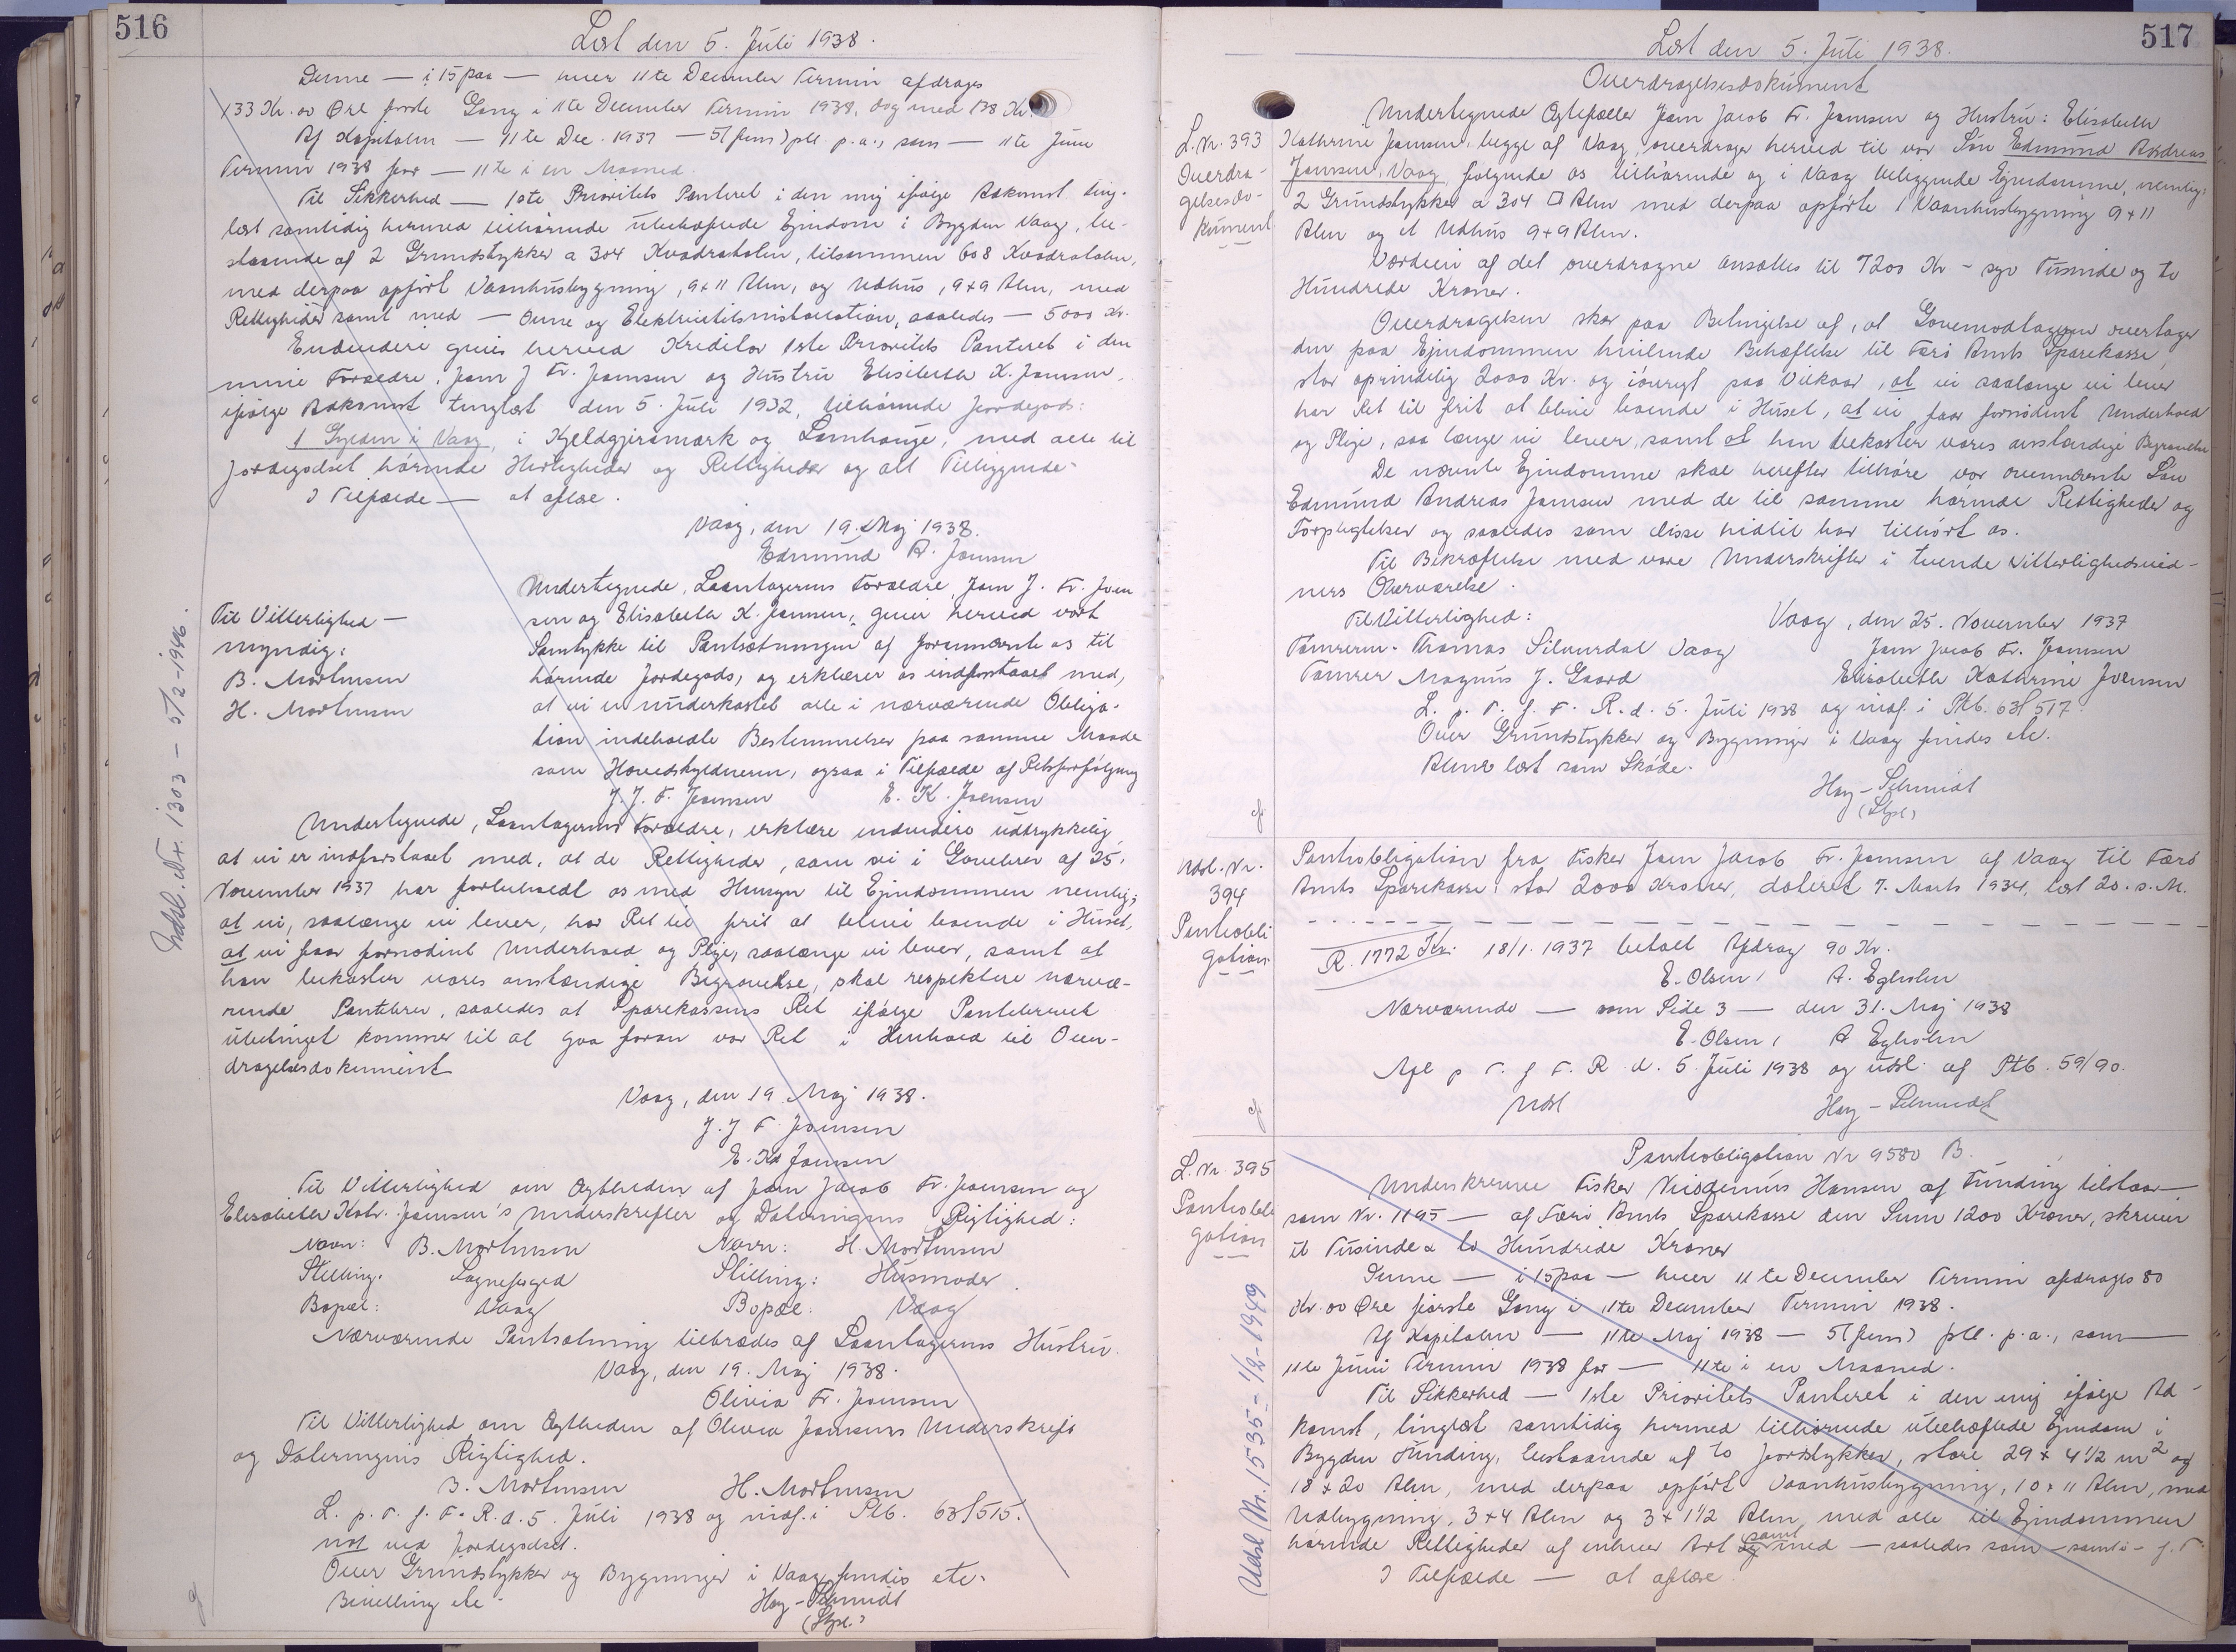 516
Læst den 5. Juli 1938.
Denne — i 15 paa — hver 11te December Termin afdrages
133 Kr. 00 Øre første Gang i 11te December Termin 1938, dog med 138 Kr.
Af Kapitalen — 11te Dec. 1937 — 5 (fem) pCt p.a., som — 11te Juni
Termin 1938 for — 11te i en Maaned.
Til Sikkerhed — 1ste Prioritets Panteret i den mig ifølge Adkomst ting-
læst samtidig hermed tilhørende ubehæftede Ejendom i Bygden Vaag, be-
staaende af 2 Grundstykker a 304 Kvadratalen, tilsammen 608 Kvadratalen,
med derpaa opført Vaanhusbygning, 9 x 11 Alen, og Udhus, 9 x 9 Alen, med
Rettigheder samt med — Ovne og Elektricitetsinstallation, saaledes — 5000 Kr.
Endvidere gives herved Kreditor 1ste Prioritets Panteret i den
mine Forældre, Joen J. Fr. Joensen og Hustru Elisabeth K. Joensen,
ifølge Adkomst tinglæst den 5. Juli 1932, tilhørende Jordegods:
1 Gylden i Vaag, i Kjeldgjirsmærk og Lamhauge, med alle til
Jordegodset hørende Herligheder og Rettigheder og alt Tilliggende.
I Tilfælde — at aflæse.
Vaag, den 19. Maj 1938.
Edmund A. Joensen
Til Vitterlighed —
myndig:
B. Mortensen
H. Mortensen
Undertegnede, Laantagerens Forældre, Joen J. Fr. Joen
sen og Elisabeth K. Joensen, giver herved vort
Samtykke til Pantsætningen af forannævnte os til
hørende Jordegods, og erklærer os indforstaaet med,
at vi er underkastet alle i nærværende Obliga-
tion indeholdte Bestemmelser paa samme Maade
som Hovedskyldneren, ogsaa i Tilfælde af Retsforfølgning
J. J. F. Joensen E. K. Joensen
Undertegnede, Laantagerens Forældre, erklære endvidere udtrykkelig
at vi er indforstaaet med, at de Rettigheder, som vi i Gavebrev af 25.
November 1937 har forbeholdt os med Hensyn til Ejendommen nemlig:
at vi, saalænge vi lever, har Ret til frit at blive boende i Huset,
at vi faar fornødent Underhold og Pleje, saalænge vi lever, samt at
han bekoster vores anstændige Begravelse, skal respektere nærvæ-
rende Pantebrev, saaledes at Sparekassens Ret ifølge Pantebrevet
ubetinget kommer til at gaa foran vor Ret i Henhold til Over-
dragelsesdokument
Vaag, den 19 Maj 1938.
J. J F. Joensen
E. Kd Joensen
Til Vitterlighed om Ægtheden af Joen Jacob Fr. Joensen og
Elisabeth Kathr. Joensen's Underskrifter og Dateringens Rigtighed:
Navn: B. Mortensen Navn: H. Mortensen
Stilling: Sognefoged Stilling: Husmoder.
Bopæl: Vaag Bopæl: Vaag
Nærværende Pantsætning tiltrædes af Laantagerens Hustru.
Vaag, den 19. Maj 1938.
Olivia Fr. Joensen
Til Vitterlighed om Ægtheden af Olivia Joensens Underskrift
og Dateringens Rigtighed.
B. Mortensen H. Mortensen
L. p. T. f. F. R. d. 5. Juli 1938 og indf. i Ptb. 63/515.
not ved Jordegodset.
Over Grundstykker og Bygninger i Vaag findes etc.
Bevilling etc.
Høy-Schmidt
(Stpl.)
Udsl. Nr. 1303 - 5/2-1946.
517
Læst den 5. Juli 1938.
Overdragelsesdokument
L. Nr. 393
Overdra-
gelsesdo-
kument
Undertegnede Ægtefæller Joen Jacob Fr. Joensen og Hustru: Elisabeth
Kathrine Joensen, begge af Vaag, overdrager herved til vor Søn Edmund Andreas
Joensen, Vaag, følgende os tilhørende og i Vaag beliggende Ejendomme, nemlig:
2 Grundstykker a 304 □ Alen med derpaa opførte 1 Vaanhusbygning 9 x 11
Alen og et Udhus 9 x 9 Alen.
Værdien af det overdragne ansættes til 7200 Kr - syv Tusinde og to
Hundrede Kroner.
Overdragelsen sker paa Betingelse af, at Gavemodtageren overtager
den paa Ejendommen hvilende Behæftelse til Færø Amts Sparekasse,
stor oprindelig 2000 Kr. og iøvrigt paa Vilkaar, at vi saalænge vi lever
har Ret til frit at blive boende i Huset, at vi faar fornødent Underhold
og Pleje, saa længe vi lever, samt at han bekoster vores anstændige Begravelse
De nævnte Ejendomme skal herefter tilhøre vor ovennævnte Søn
Edmund Andreas Joensen med de til samme hørende Rettigheder og
Forpligtelser og saaledes som disse hidtil har tilhørt os.
Til Bekræftelse med vore Underskrifter i tvende Vitterlighedsvid-
ners Overværelse.
Til Vitterlighed: Vaag, den 25. November 1937
Tømrerm. Thomas Silverdal Vaag Joen Jacob Fr. Joensen
Tømrer Magnus J. Gaard Elisabeth Kathrine Joensen
L. p. T. f. F. R. d. 5. Juli 1938 og indf. i Ptb. 63/517.
Over Grundstykker og Bygninger i Vaag findes etc.
Alene læst som Skøde.
Høy-Schmidt
(Stpl.)
Udsl. Nr.
394
Pantobli
gation
Pantobligation fra Fisker Joen Jacob Fr. Joensen af Vaag til Færø
Amts Sparekasse, stor 2000 Kroner, dateret 7. Marts 1934, læst 20. s. M.
R. 1772 Kr. 18/1. 1937 betalt Afdrag 90 Kr.
E. Olsen, A. Egholm
Nærværende — som Side 3 — den 31. Maj 1938
E. Olsen, A Egholm
Afl p T. f F. R d. 5. Juli 1938 og udsl. af Ptb. 59/90.
Udsl Høy-Schmidt
L. Nr. 395
Pantobli
gation
Pantobligation Nr 9580 B.
Underskrevne Fisker Nicodemus Hansen af Funding tilstaar —
som Nr. 1195 — af Færø Amts Sparekasse den Sum 1200 Kroner, skriver
et Tusinde & to Hundrede Kroner
Denne — i 15 paa — hver 11te December Termin afdrages 80
Kr. 00 Øre første Gang i 11te December Termin 1938.
Af Kapitalen — 11te Maj 1938 — 5 (fem) pCt. p.a., som —
11te Juni Termin 1938 for — 11te i en Maaned.
Til Sikkerhed — 1ste Prioritets Panteret i den mig ifølge Ad-
komst, tinglæst samtidig hermed tilhørende ubehæftede Ejendom i
Bygden Funding, bestaaende af to Jordstykker, store 29 x 4 1/2 m² og
18 x 20 Alen, med derpaa opført Vaanhusbygning, 10 x 11 Alen, med
Udbygning, 3 x 4 Alen og 3 x 1 1/2 Alen med alle til Ejendommen
hørende Rettigheder af enhver Art samt med — saaledes som — samt i - f. T.
I Tilfælde — at aflæse.
Udsl Nr. 1535 - 1/2-1949